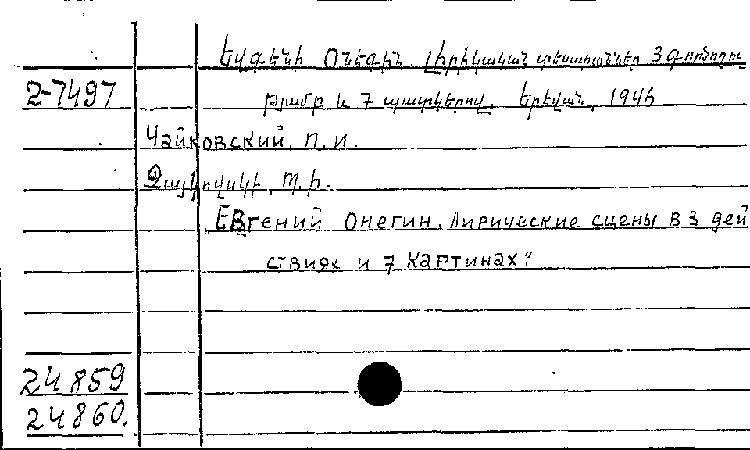 Եվգենի Օնեգին. Լիրիկական տեսարաններ 3 գործողու
2-7497
թյամբ և 7 պատկերով. Երեվան, 1946
Чайковский, П. И.
Չայկովսկի, Պ. Ի.
Евгений Онегин. Лирические сцены в 3 дей
ствиях и 7 картинах.
24859
24860.